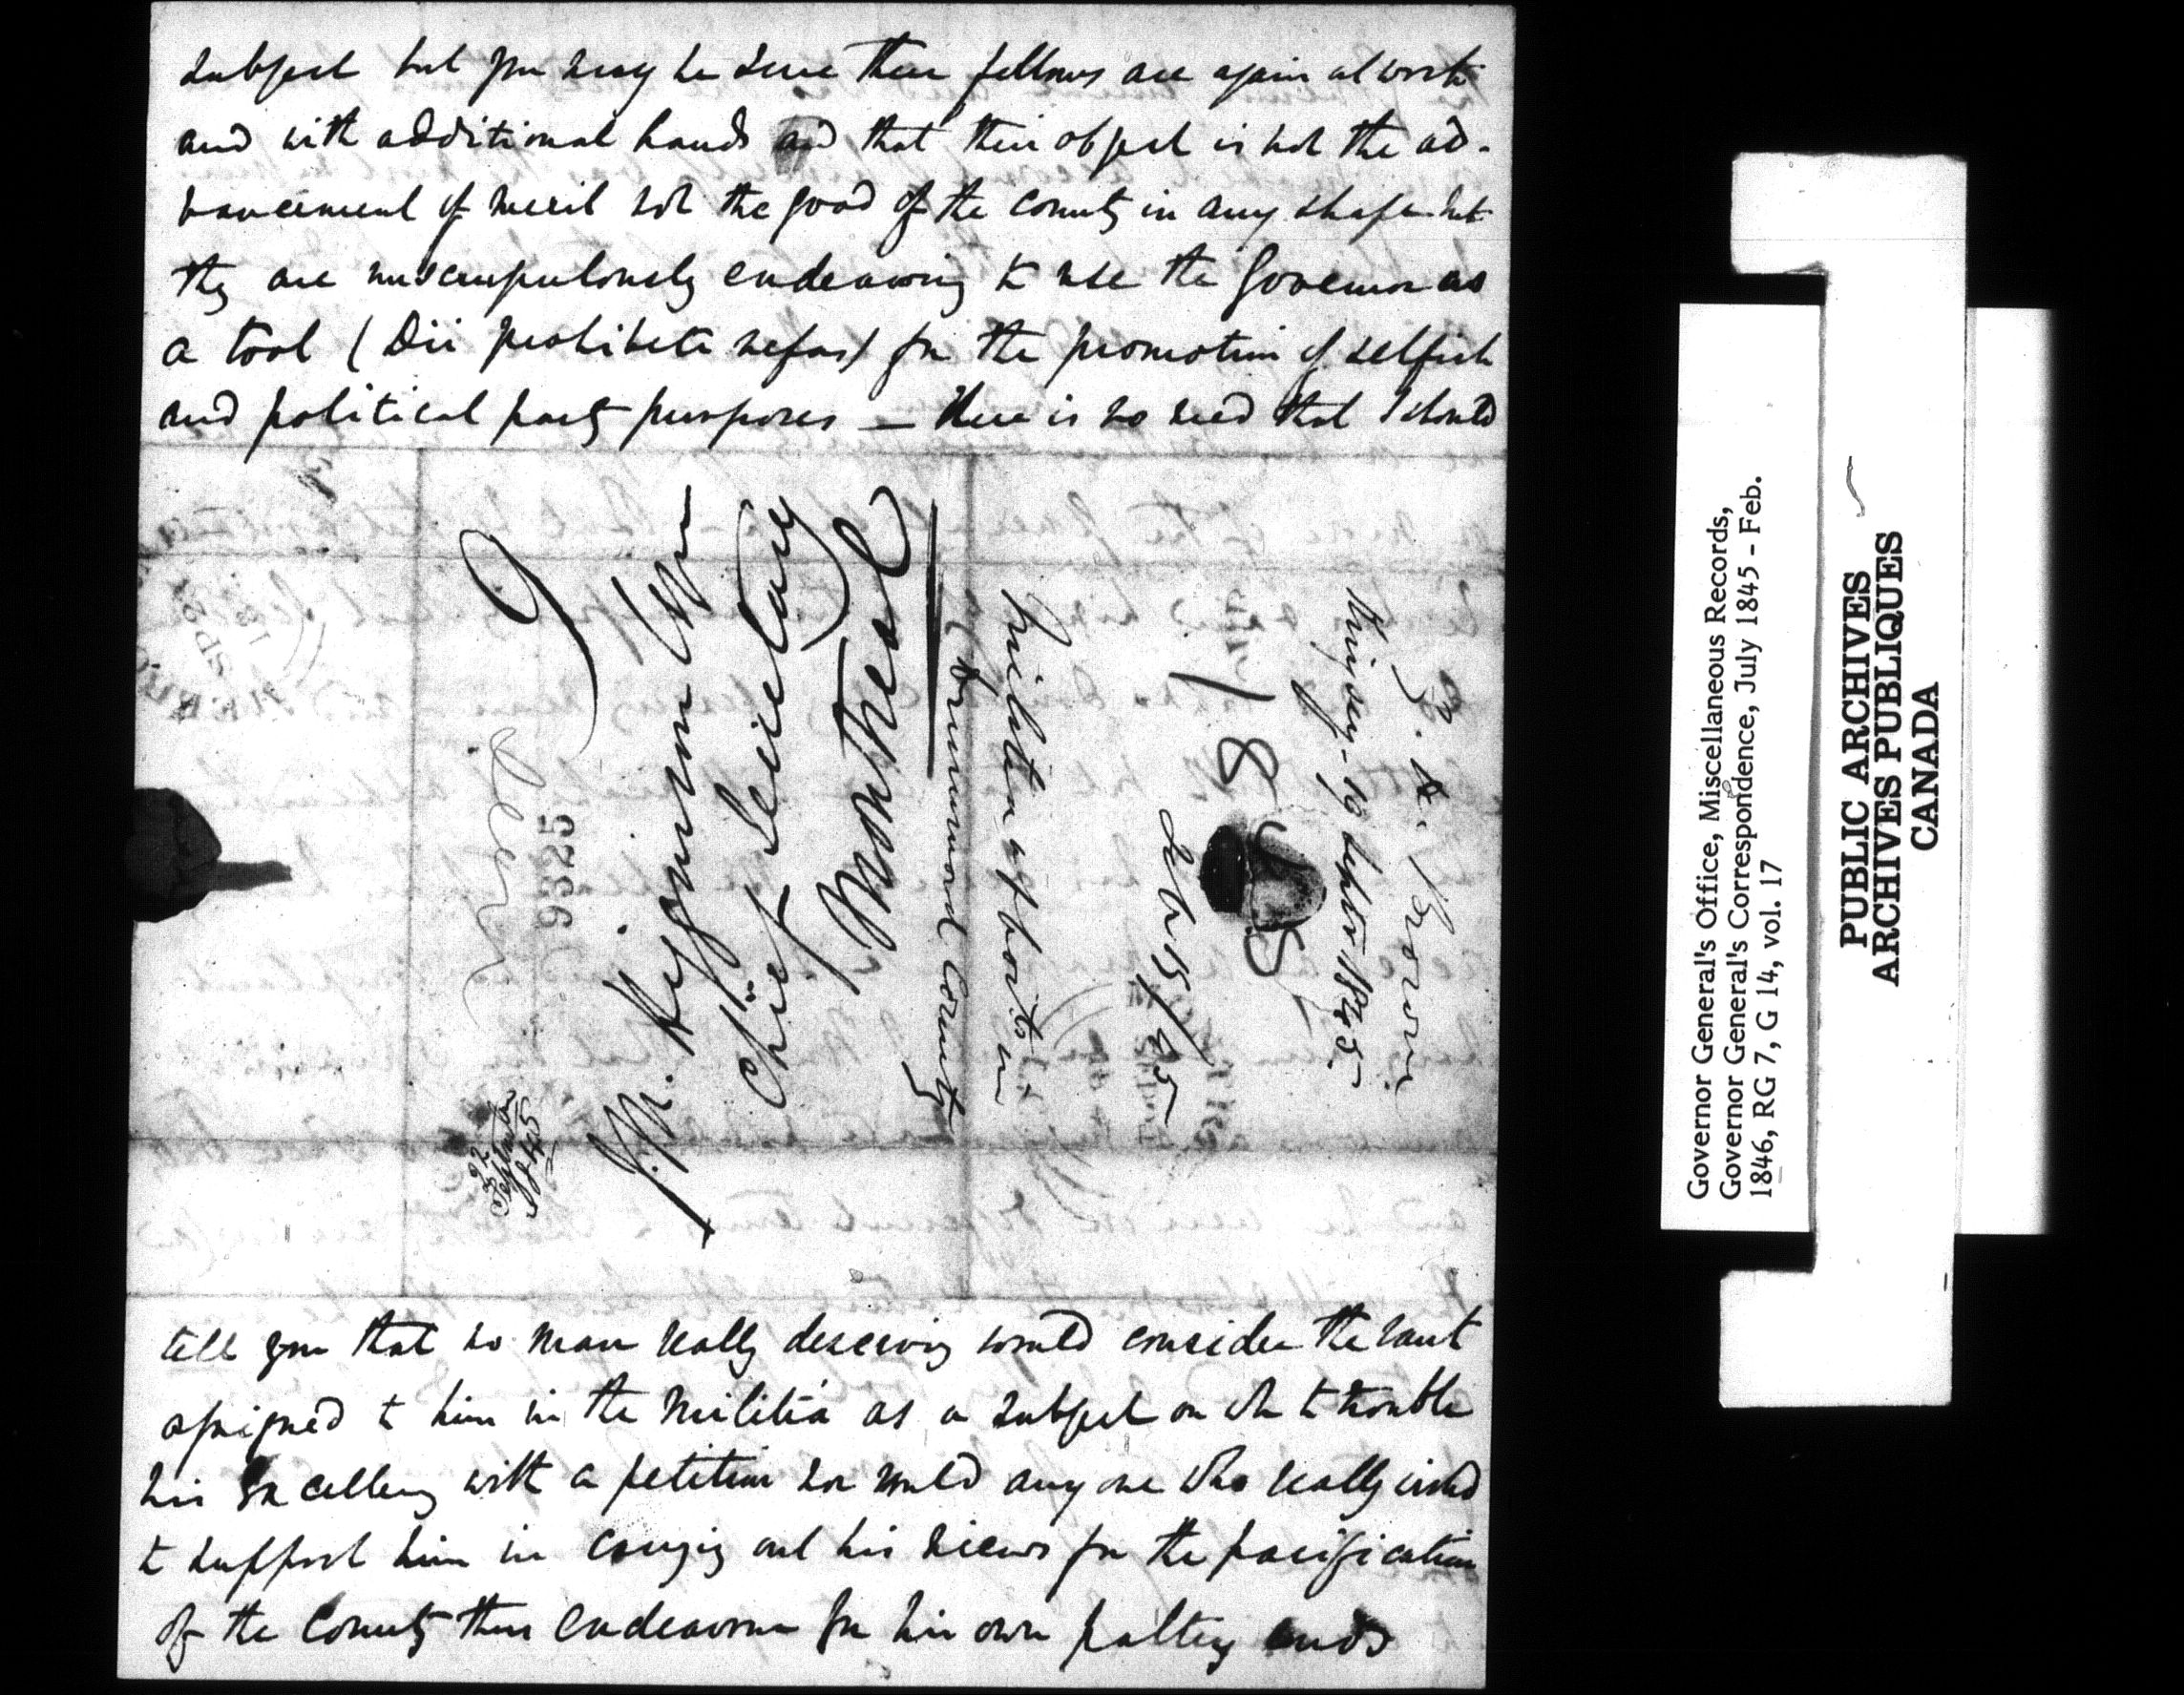 subject but you may be sure these fellows are again at work
and with additional hands and that their object is not the ad-
vancement of merit nor the good of the county in any shape but
they are unscrupulously endeavoring to use the Governor as
a tool (Dii prohibete nefas) for the promotion of selfish
and political party purposes — There is no need that I should
J. M. Higginson Esqr
Chief Secretary
Montreal
9325
22
September
1845
Militia appointments in
Drummond County
1845
Kingsey - 19 Septr 1845
Brown
tell you that no man really deserving would consider the rank
assigned to him in the Militia as a subject on wh to trouble
his Excellency with a petition nor would any one who really wished
to support him in carrying out his views for the pacification
of the County thus endeavour for his own paltry ends
Governor General's Office, Miscellaneous Records,
Governor General's Correspondence, July 1845 - Feb.
1846, RG 7, G 14, vol. 17
PUBLIC ARCHIVES
ARCHIVES PUBLIQUES
CANADA